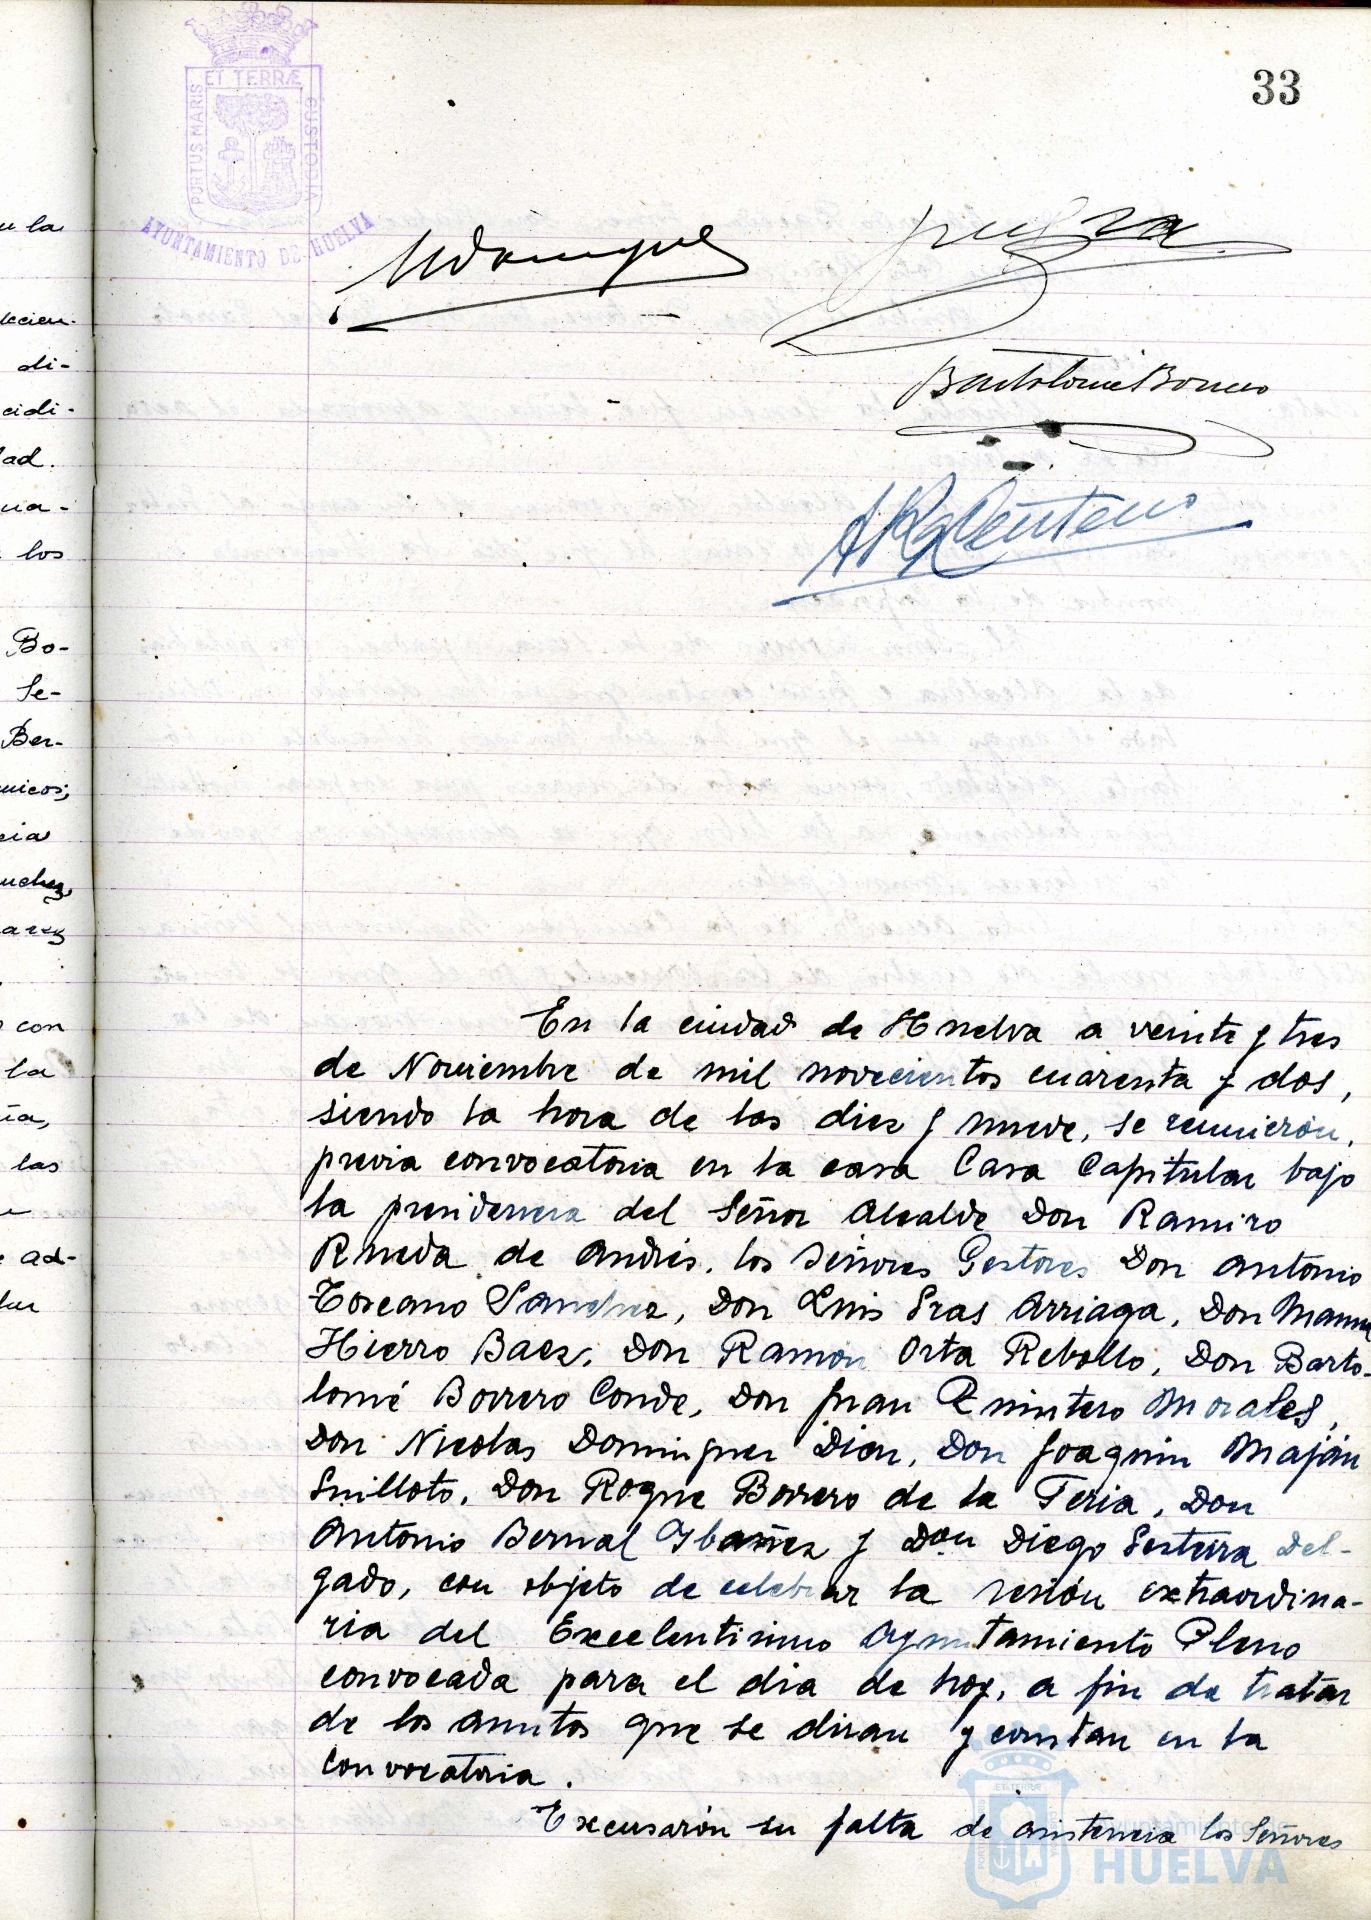 33
PORTUS MARIS
ET TERRÆ
CUSTODIA
AYUNTAMIENTO DE HUELVA
Bartolomé Borrero
En la ciudad de Huelva a veinte y tres
de Noviembre de mil novecientos cuarenta y dos,
siendo la hora de las diez y nueve, se reunieron,
previa convocatoria en la casa Casa Capitular bajo
la presidencia del Señor Alcalde Don Ramiro
Rueda de Andrés, los Señores Gestores Don Antonio
Toscano Sanchez, Don Luis Sras Arriaga, Don Manuel
Hierro Baez, Don Ramon Orta Rebollo, Don Barto-
lomé Borrero Conde, Don Juan Quintero Morales,
Don Nicolas Dominguez Diaz, Don Joaquin Maján
Guilloto, Don Roque Borrero de la Feria, Don
Antonio Bernal Ybañez y Don Diego Sesteira Del-
gado, con objeto de celebrar la sesión extraordina-
ria del Excelentisimo Ayuntamiento Pleno
convocada para el dia de hoy, a fin de tratar
de los asuntos que se diran y constan en la
convocatoria.
Excusarón su falta de asistencia los Señores
u la
di-
cidi-
ad.
ua-
los
Bo-
Se-
Ber-
micos;
cia
arez
con
la
ia,
las
ad-
Ayuntamiento de
HUELVA